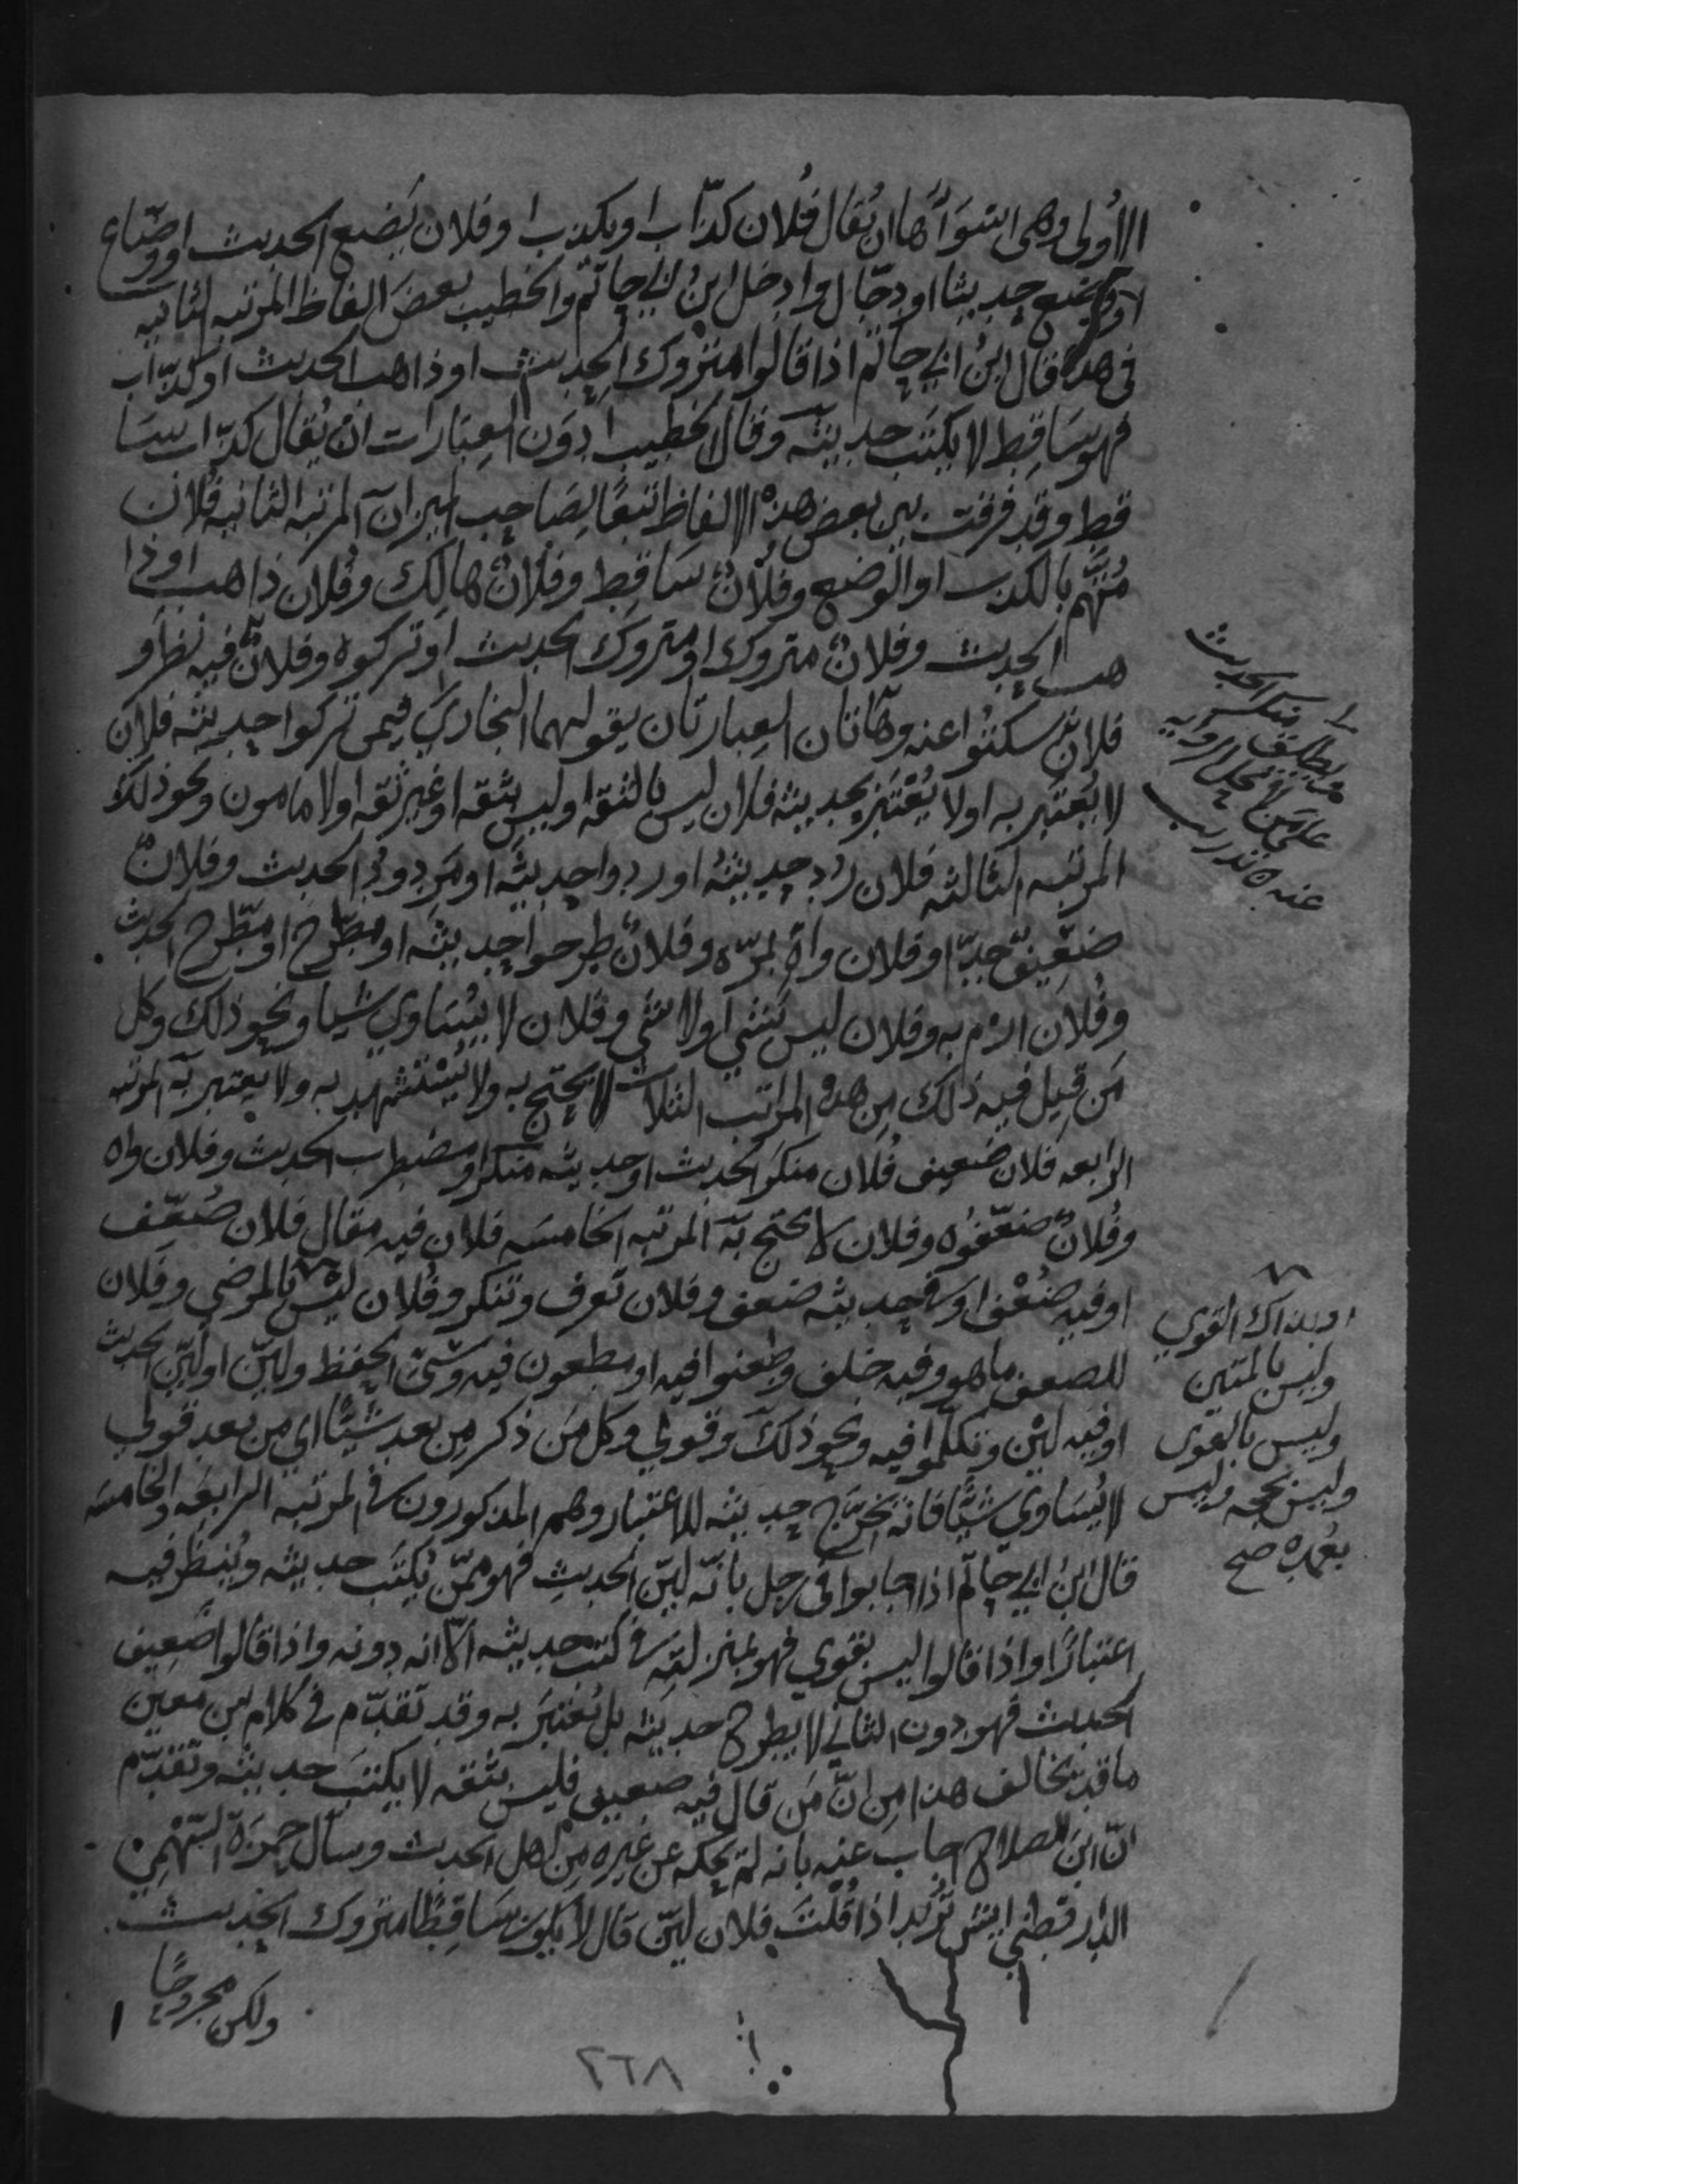 الاولى وهى اسوَأُها ان يُقال فُلان كذّاب او يكذب او فلان يَضع الحديث او وضّاع
او وضع حديثا او دجّال وادخل ابنُ ابي حاتم والخطيب بعضَ الفاظ المرتبه الثانيه
فى هذه قال ابنُ ابي حاتم اذا قالوا متروك الحديث او ذاهب الحديث او كذّاب
فهو سَاقِط لا يكتَب حديثه وقال الخطيب ادوَن العِبَارات ان يُقال كذّاب سا
قط وقد فرقت بين بعض هذه الالفاظ تبَعًا لِصَاحِب الميزان المرتبه الثانيه فُلان
مُتّهَم بالكذب او الوضع وفلانٌ سَاقِط وفلانٌ هالِك وفُلان ذاهب او ذا
هب الحديث وفلانٌ متروك او متروك الحديث او تركوه وفلانٌ فيه نظر او
فلانٌ سكتُوا عنه وهاتان العِبارتان يقولهما البخاري فيمن تركوا حديثه فلان
لا يُعتبَر به او لا يُعْتَبَر بحديثه فلان ليس بالثقه او ليس بثقه او غير ثقه او لا مامون ونحو ذلك
المرتبه الثالثه فلان رُدّ حديثُه او ردوا حديثه او مَردودُ الحديث وفلانٌ
ضعِيفٌ جدّا وفلان واهٍ بمرّه وفلانٌ طرحوا حديثه او مطّرح او مطّرح الحديث
وفُلان ارْم به وفلان ليس بشي او لا شي وفلان لا يُسَاوي شيا ونحو ذلك وكل
مَن قِيل فيه ذلك مِن هذه المراتب الثلاث لا يحتج به ولا يُستشهد به ولا يعتبر به المرتبه
الرابعه فلان ضَعيف فُلان منكَر الحديث او حديثه منكر او مضطرب الحديث وفلان واه
وفُلانٌ ضعّفُوه وفلان لا يحتج به المرتبه الخامسَه فلان فيه مقال فلان ضُعّف
او فيه ضُعْف او فى حديثه ضعف وفلان تَعرف وتنكر وفُلان ليس بالمرضي وفلان
للضعف ما هو وفيه خلف وطعنوا فيه او مطعون فيه وسَيّئ الحفظ وليّن او ليّن الحديث
او فيه لِيْن وتكلّموا فيه ونحو ذلك وقولي وكل مَن ذكر مِن بعد شَيْئًا اي من بعد قولي
لا يُسَاوي شَيْئًا فانه يُخَرّج حديثه للاعتبار وهم المذكورون فى المرتبه الرابعَه والخامسَه
قال ابنُ ابي حاتم اذا اجابوا فى رجل بانّه ليّن الحديث فهو ممّن يُكتَب حديثه ويُنظَر فيه
اعتبارًا واذا قالوا ليس بقوي فهو بمنزلته فى كتب حديثه الّا انه دونه واذا قالوا ضَعِيف
الحديث فهو دون الثاني لا يطرح حديثه بل يُعتبَر به وقد تقدّم فى كلام بن معين
ما قد يخالف هذا مِن انَّ مَن قال فيه ضعيف فليس بثقه لا يكتَب حديثه وتقدّم
انّ ابن الصلاح اجاب عنه بانه لم يحكه عن غيره مِن اهل الحديث وسأل حمزَة السّهْمي
الدارقطني ايش تُريد اذا قُلتَ فلان ليّن قال لا يكون سَاقِطًا متروك الحديث
ولكن مجروحًا
ويطلق منكر الحديث
على من لا تحل الرواية
عنه ه تدريب
او بذاك القوي
وليس بالمتين
وليس بالقوى
وليس بحجه وليس
بعُمده صح
٢٦٨